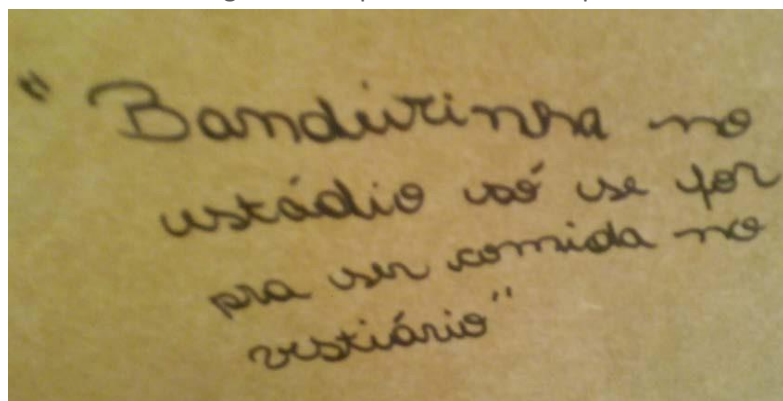 "Bandeirinha no
estádio só se for
pra ser comida no
vestiário"